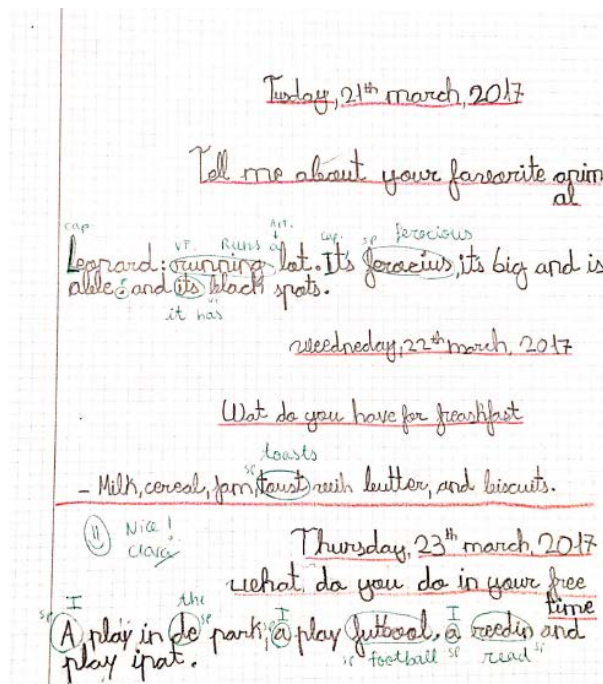 Tusday, 21th march, 2017
Tell me about your favorite anim
al
cap VF. Runs Art. a Cap. sp ferocious
Leopard: running lot. It's feracius, it's big and is
able and its black spots.
it has
weedneday, 22th march, 2017
Wat do you have for
toasts
- Milk, cereal, jam, sp toust butter, and biscuits.
Nice!
Clara
Thursday, 23th march, 2017
what do you do in your free
time
sp I the sp I I
A play in de park, a play futbool, a reedin and
play ipat.
sp football sp read sp